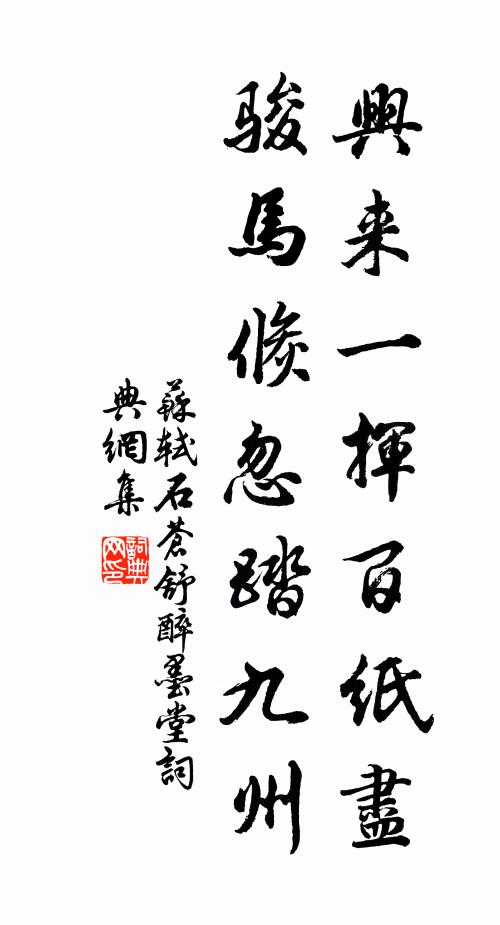 興来一揮百紙盡
骏馬倏忽踏九州
蘇轼石蒼舒醉墨堂詞
典網集
詞典网印